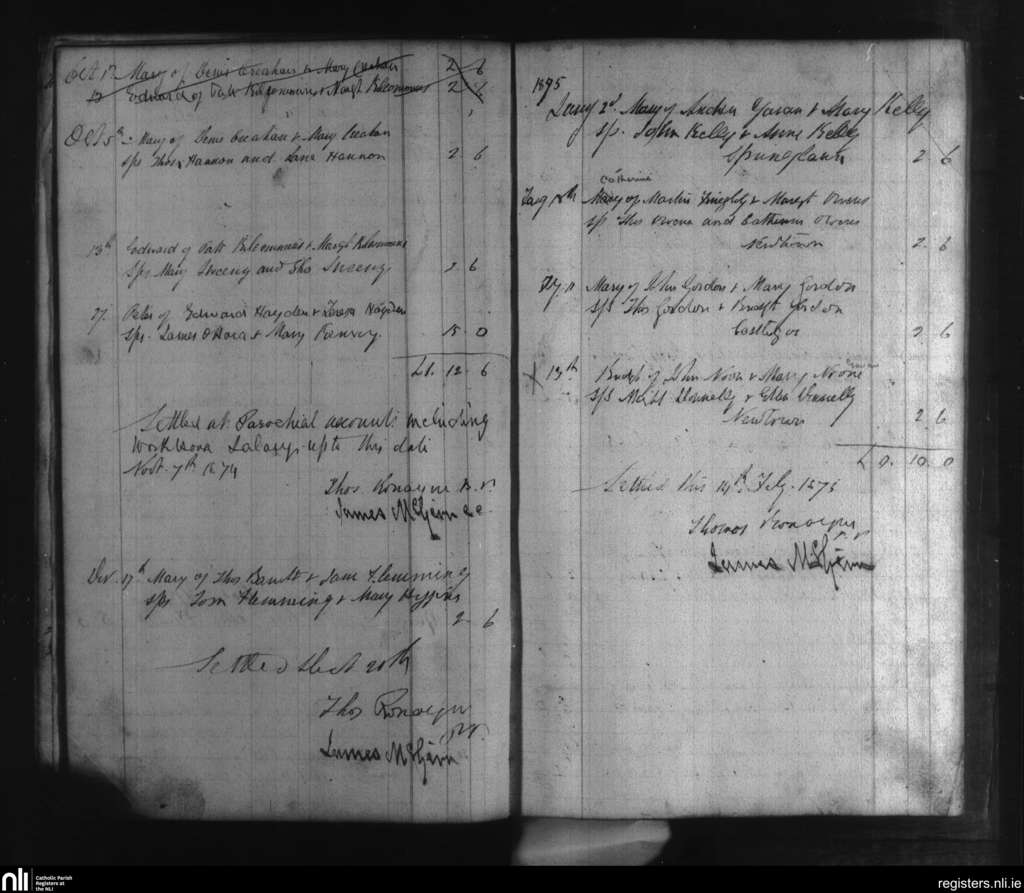 Oct 1st Mary of Denis Creahan & Mary Creahan 2 6
12 Edward of Patt Kilcommins & Margt Kilcommins 2 6
Oct 5th Mary of Denis Creahan & Mary Creahan
Sps Thos Hannon and Jane Hannon 2 6
13th Edward of Patt Kilcommins & Margt Kilcommins
Sps Mary Sweeny and Thos Sweeny 2 6
27 Peter of Edward Hayden & Teresa Hayden
Sps James O'Hara & Mary 15 0
£1. 12. 6
Settled all Parochial accounts including
Workhouse Salary up to this date
Novr. 7th 1874
Thos. Ronayne P. P.
James McGivern C C
17th Mary of Thos Barrett & Jane Flemming
Sps Tom Flemming & Mary Higgins
2 6
Settled 20th
Thos Ronayne
P.P.
James McGivern
1875
Jany 2d. Mary of Andrew Gavan & Mary Kelly
Sps. John Kelly & Anne Kelly
2 6
Catherine
Mary of Martin & Margt Owens
Sps Thos Owens and Catherine Owens
Newtown 2 6
Mary of John Gordon & Mary Gordon
Sps Thos Gordon & Bridgt Gordon
Castlegar 2 6
X 13th Bridgt of John Noon & Mary Noone
Sps Donnelly & Ellen Donnelly
Newtown 2 6
£ 0. 10. 0
Settled this 14th. Feby. 1875
Thomas Ronayne
P. P.
James McGivern
nli
Catholic Parish
Registers at
the NLI
registers.nli.ie